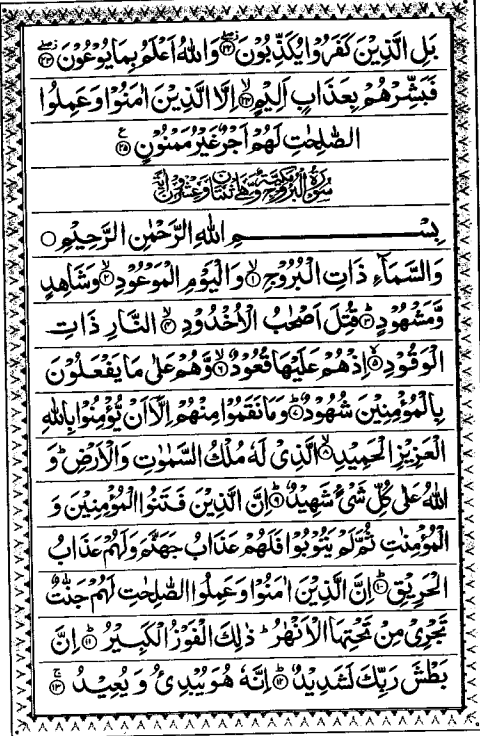 بَلِ الَّذِيْنَ كَفَرُوْا يُكَذِّبُوْنَ ﴿۲۲﴾ وَاللّٰهُ اَعْلَمُ بِمَا يُوْعُوْنَ ﴿۲۳﴾
فَبَشِّرْهُمْ بِعَذَابٍ اَلِيْمٍ ﴿۲۴﴾ اِلَّا الَّذِيْنَ اٰمَنُوْا وَعَمِلُوا
الصّٰلِحٰتِ لَهُمْ اَجْرٌ غَيْرُ مَمْنُوْنٍ ﴿۲۵﴾
سُوْرَةُ الْبُرُوْجِ مَكِّيَّةٌ وَّهِيَ اثْنَتَانِ وَعِشْرُوْنَ اٰيَةً
بِسْمِ اللّٰهِ الرَّحْمٰنِ الرَّحِيْمِ ○
وَالسَّمَآءِ ذَاتِ الْبُرُوْجِ ﴿۱﴾ وَالْيَوْمِ الْمَوْعُوْدِ ﴿۲﴾ وَشَاهِدٍ
وَّمَشْهُوْدٍ ﴿۳﴾ قُتِلَ اَصْحٰبُ الْاُخْدُوْدِ ﴿۴﴾ النَّارِ ذَاتِ
الْوَقُوْدِ ﴿۵﴾ اِذْ هُمْ عَلَيْهَا قُعُوْدٌ ﴿۶﴾ وَّهُمْ عَلٰى مَا يَفْعَلُوْنَ
بِالْمُؤْمِنِيْنَ شُهُوْدٌ ﴿۷﴾ وَمَا نَقَمُوْا مِنْهُمْ اِلَّآ اَنْ يُّؤْمِنُوْا بِاللّٰهِ
الْعَزِيْزِ الْحَمِيْدِ ﴿۸﴾ الَّذِيْ لَهٗ مُلْكُ السَّمٰوٰتِ وَالْاَرْضِ ؕ وَ
اللّٰهُ عَلٰى كُلِّ شَيْءٍ شَهِيْدٌ ﴿۹﴾ اِنَّ الَّذِيْنَ فَتَنُوا الْمُؤْمِنِيْنَ وَ
الْمُؤْمِنٰتِ ثُمَّ لَمْ يَتُوْبُوْا فَلَهُمْ عَذَابُ جَهَنَّمَ وَلَهُمْ عَذَابُ
الْحَرِيْقِ ﴿۱۰﴾ اِنَّ الَّذِيْنَ اٰمَنُوْا وَعَمِلُوا الصّٰلِحٰتِ لَهُمْ جَنّٰتٌ
تَجْرِيْ مِنْ تَحْتِهَا الْاَنْهٰرُ ؕ ذٰلِكَ الْفَوْزُ الْكَبِيْرُ ﴿۱۱﴾ اِنَّ
بَطْشَ رَبِّكَ لَشَدِيْدٌ ﴿۱۲﴾ اِنَّهٗ هُوَ يُبْدِئُ وَ يُعِيْدُ ﴿۱۳﴾